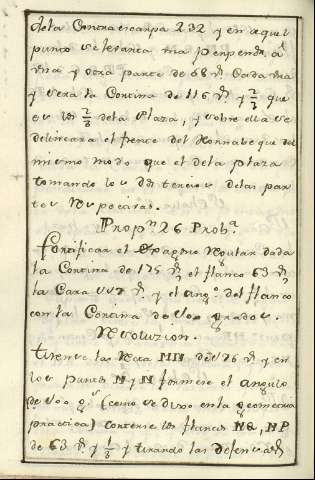 dela Contraescarpa 232 y en aquel
punto se levanta una Perpendr. á
una y otra parte de 68 Cada una
y sera la Cortina de 116 y 2/3 que
es los 2/3 dela Plaza, y sobre ella se
delineara el frente del Hornabeque del
mismo modo que el dela plaza
tomando los dos tercios delas par
tes
Propn. 26. Proba.
Fortificar el Exagono Regular dada
la Cortina de 175 el flanco 63
la Cara y el angº. del flanco
con la Cortina de grados.
Resoluzion.
tirese la Recta MN de y en
los puntos M y N formese el angulo
de (como se dixo enla geometria
practica) Cortense los flancos NP
de 63 y 1/3 y tirando las defensas